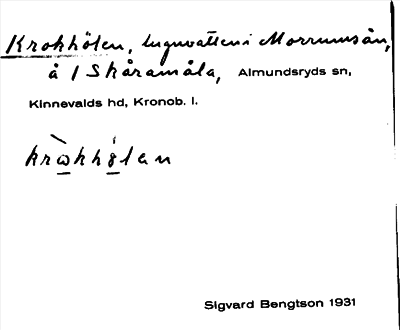 Krokhölen, lugnvatten i Morrumsån,
å 1 Skåramåla, Almundsryds sn,
Kinnevalds hd, Kronob. l.
kràkhölan
Sigvard Bengtson 1931